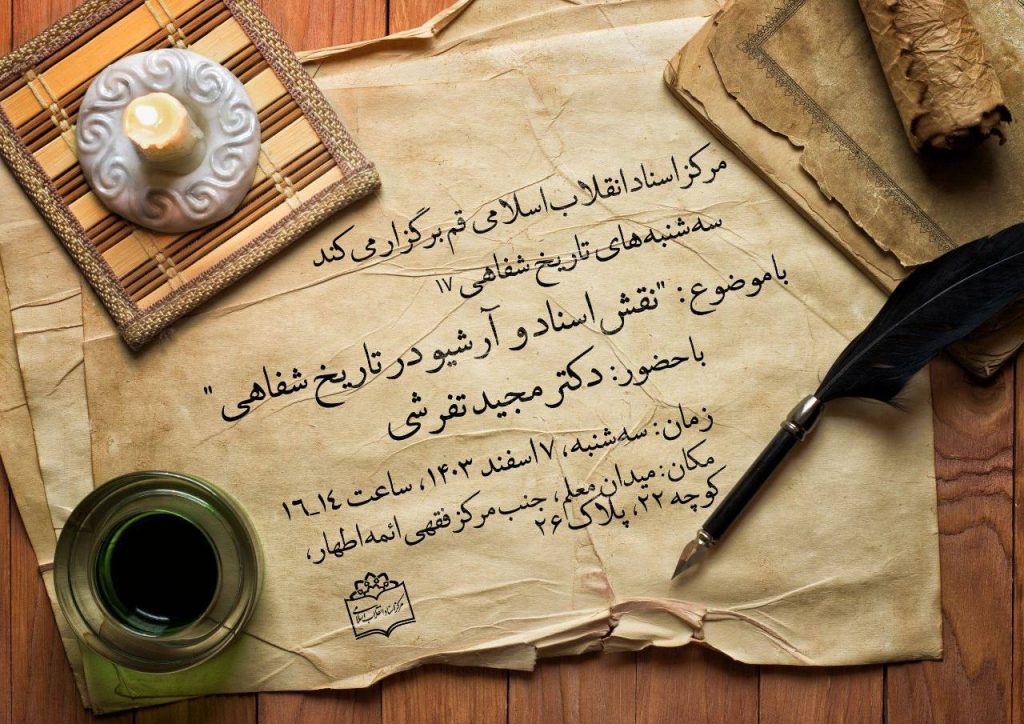 مرکز اسناد انقلاب اسلامی قم برگزار می کند
سه شنبه های تاریخ شفاهی ۱۷
با موضوع: "نقش اسناد و آرشیو در تاریخ شفاهی"
با حضور: دکتر مجید تفرشی
زمان: سه شنبه، ۷ اسفند ۱۴۰۳، ساعت ۱۴_۱۶
مکان: میدان معلم، جنب مرکز فقهی ائمه اطهار،
کوچه ۲۲، پلاک ۲۶
مرکز اسناد انقلاب اسلامی